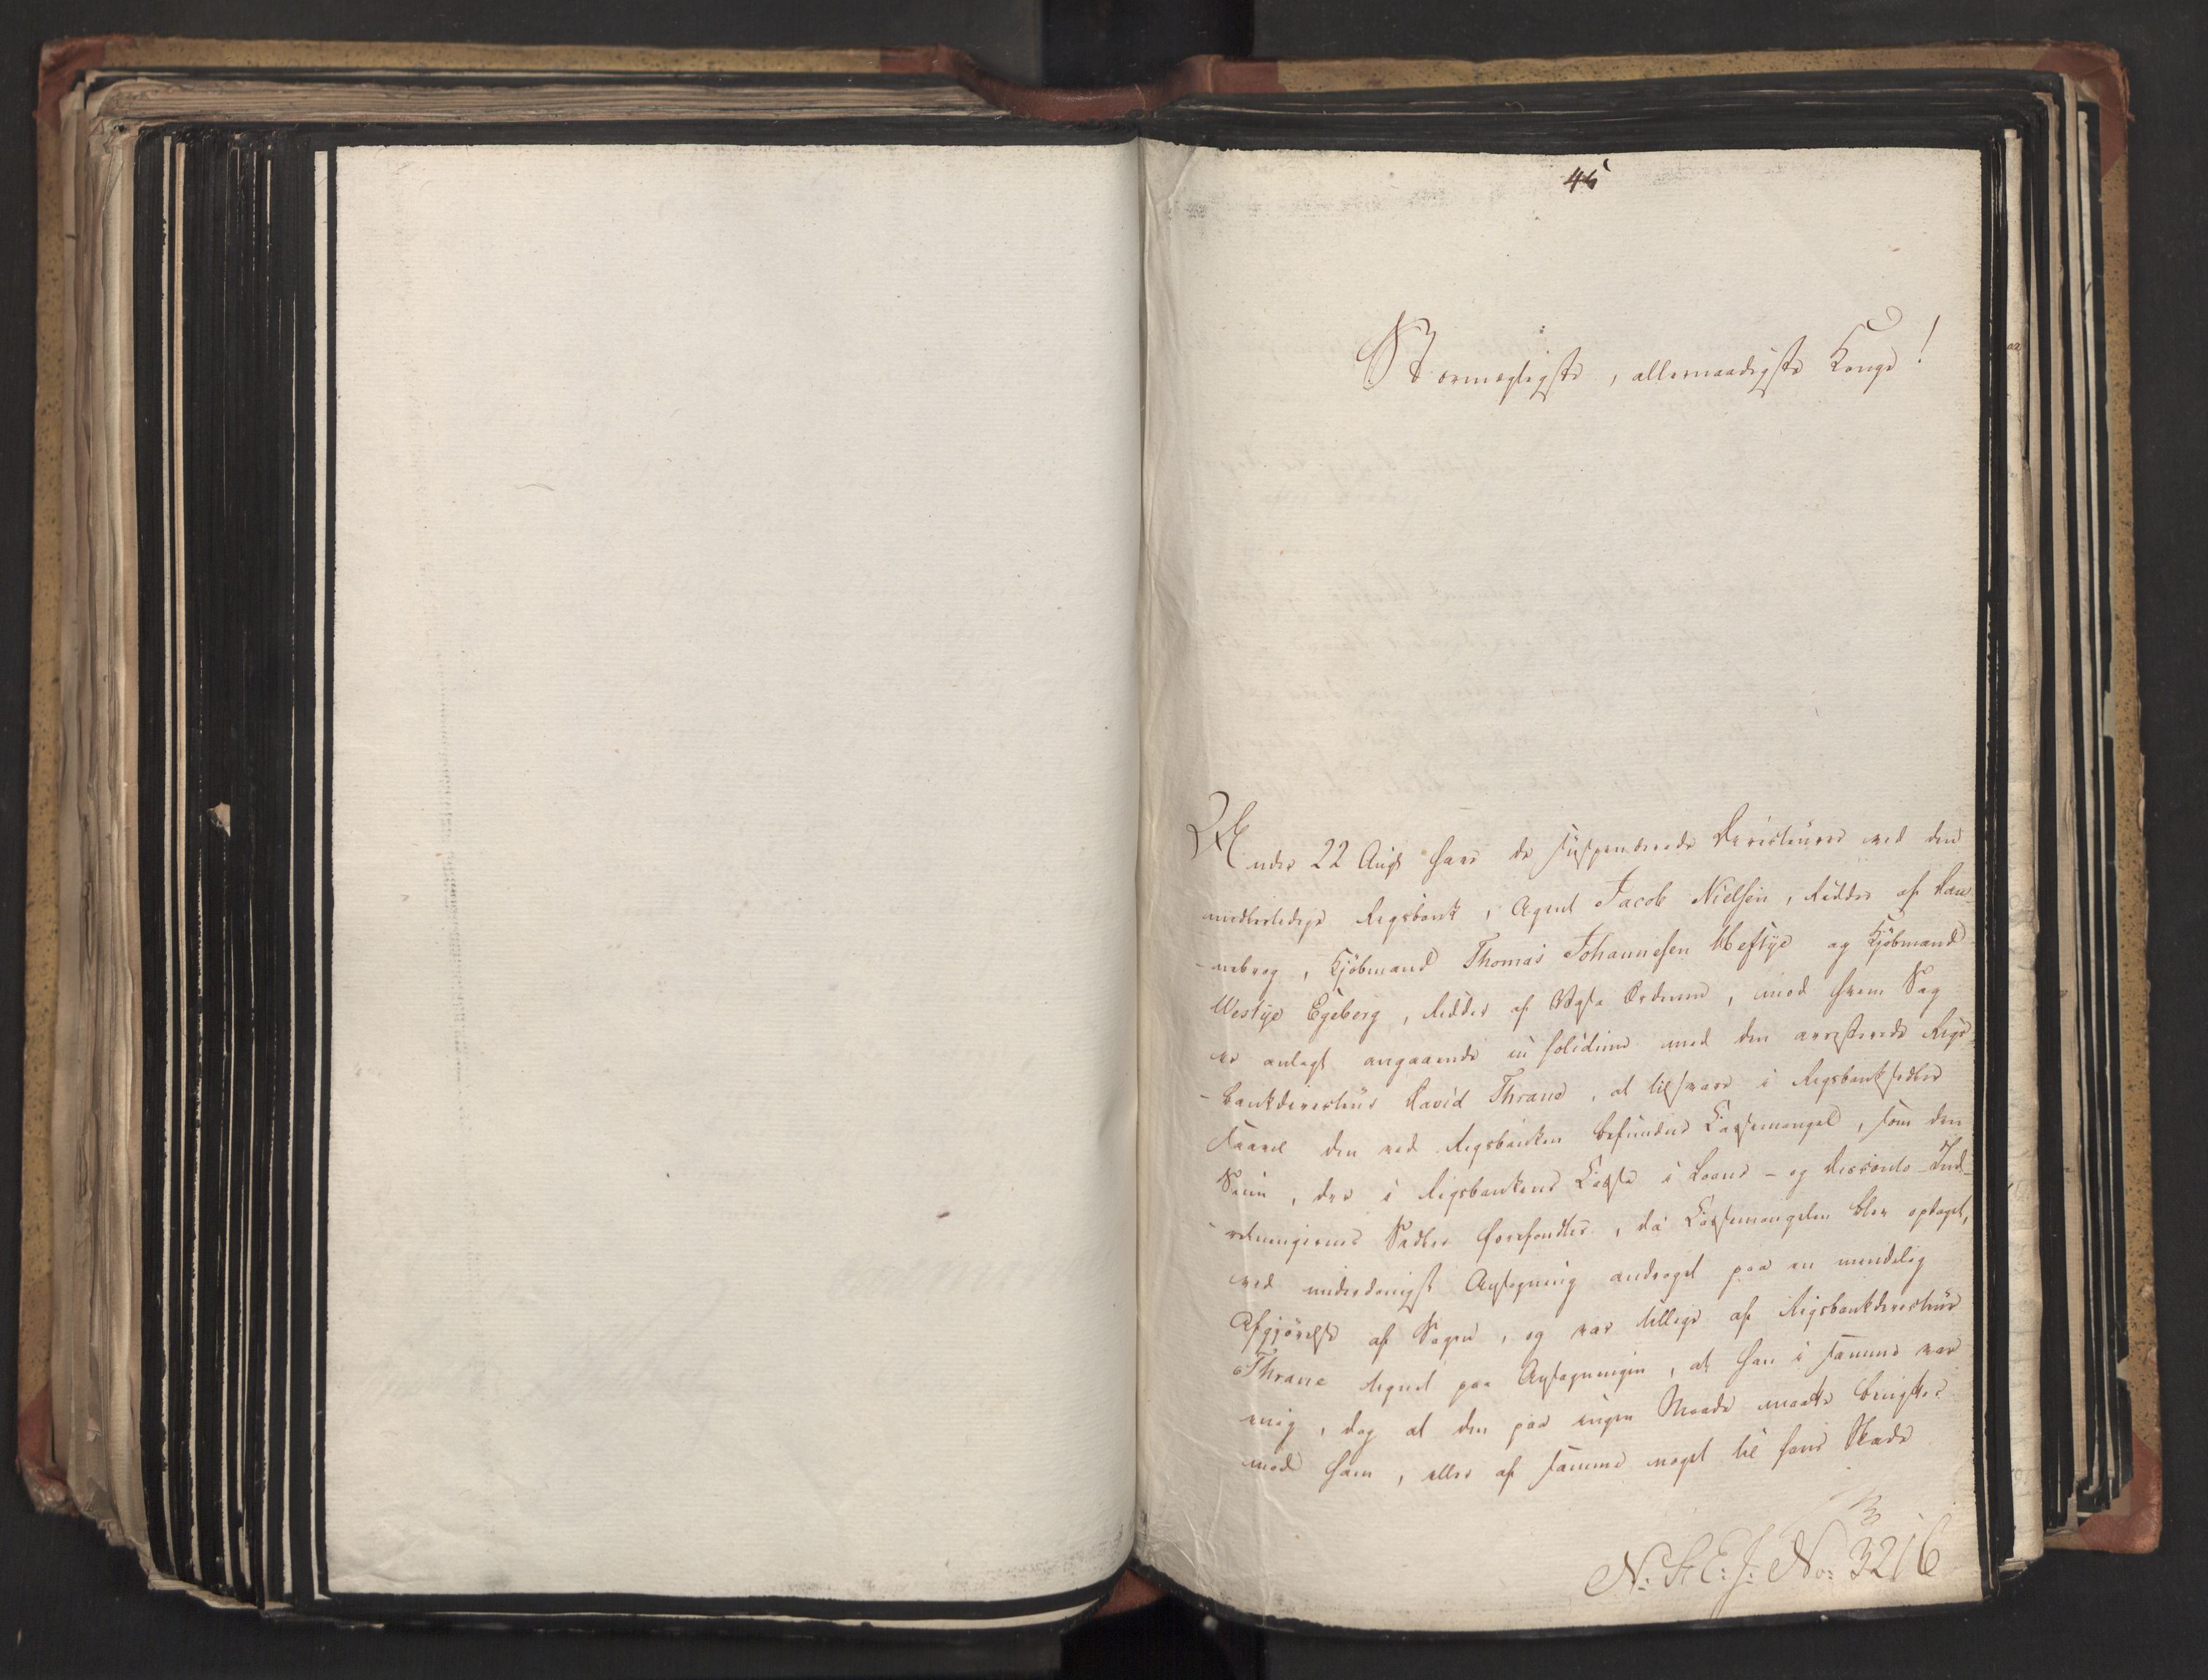 46
Stormægtigste, allernaadigste Konge!
Under 22 Augs have de suspenderede Directeurer ved den
midlertidige Rigsbank, Agent Jacob Nielsen, Ridder af Dan-
-nebrog, Kjöbmand Thomas Johannesen Heftye og Kjöbmand
Westye Egeberg, Ridder af Wasa Ordenen, mod hvem Sag
er anlagt angaaende in solidum med den arresterede Rigs-
-bankdirecteur David Thrane, at tilsvare i Rigsbanksedler
saavel den ved Rigsbanken befundne Cassemangel, som den
Sum, der i Rigsbankens Casse i Laane- og Disconto-Ind-
-retningernes Sedler forefandtes, da Cassemangelen blev opdaget,
ved underdanigst Ansøgning andraget paa en mindelig
Afgjörelse af Sagen, og var tillige af Rigsbankdirecteur
Thrane tegnet paa Ansøgningen, at han i samme var
enig, dog at den paa ingen Maade maatte benyttes
mod ham, eller af samme noget til hans Skade
N: St: E: J: No: 3216